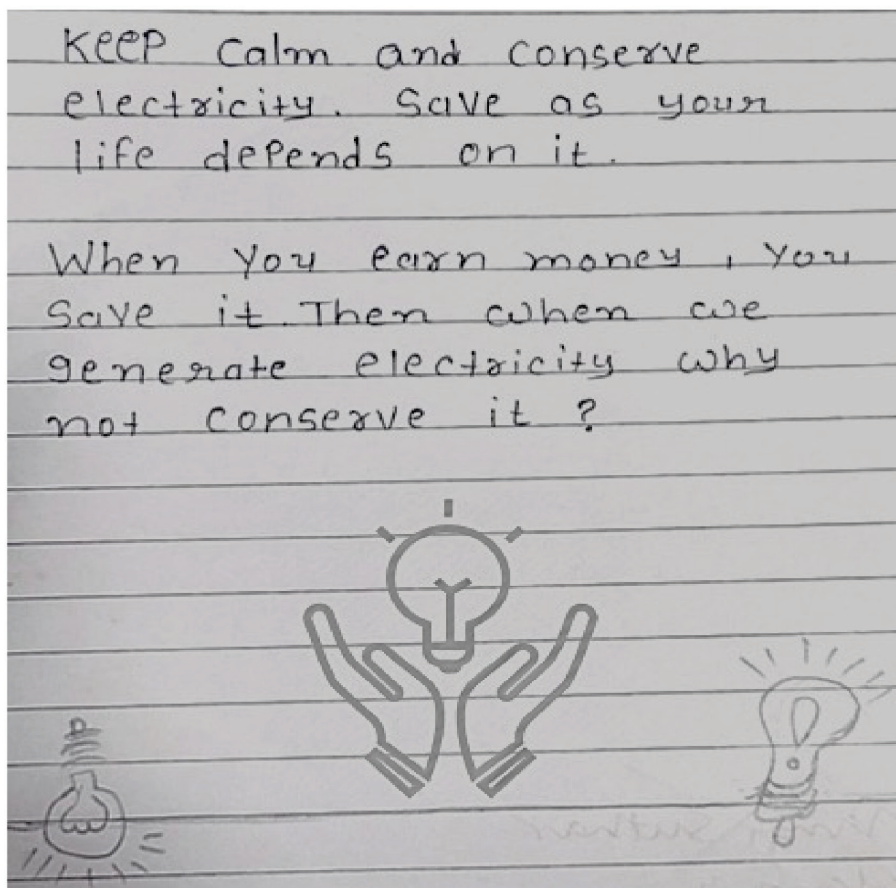 KEEP Calm and conserve
electricity. Save as your
life depends on it.
When You earn money, You
Save it. Then when we
generate electricity why
not conserve it ?